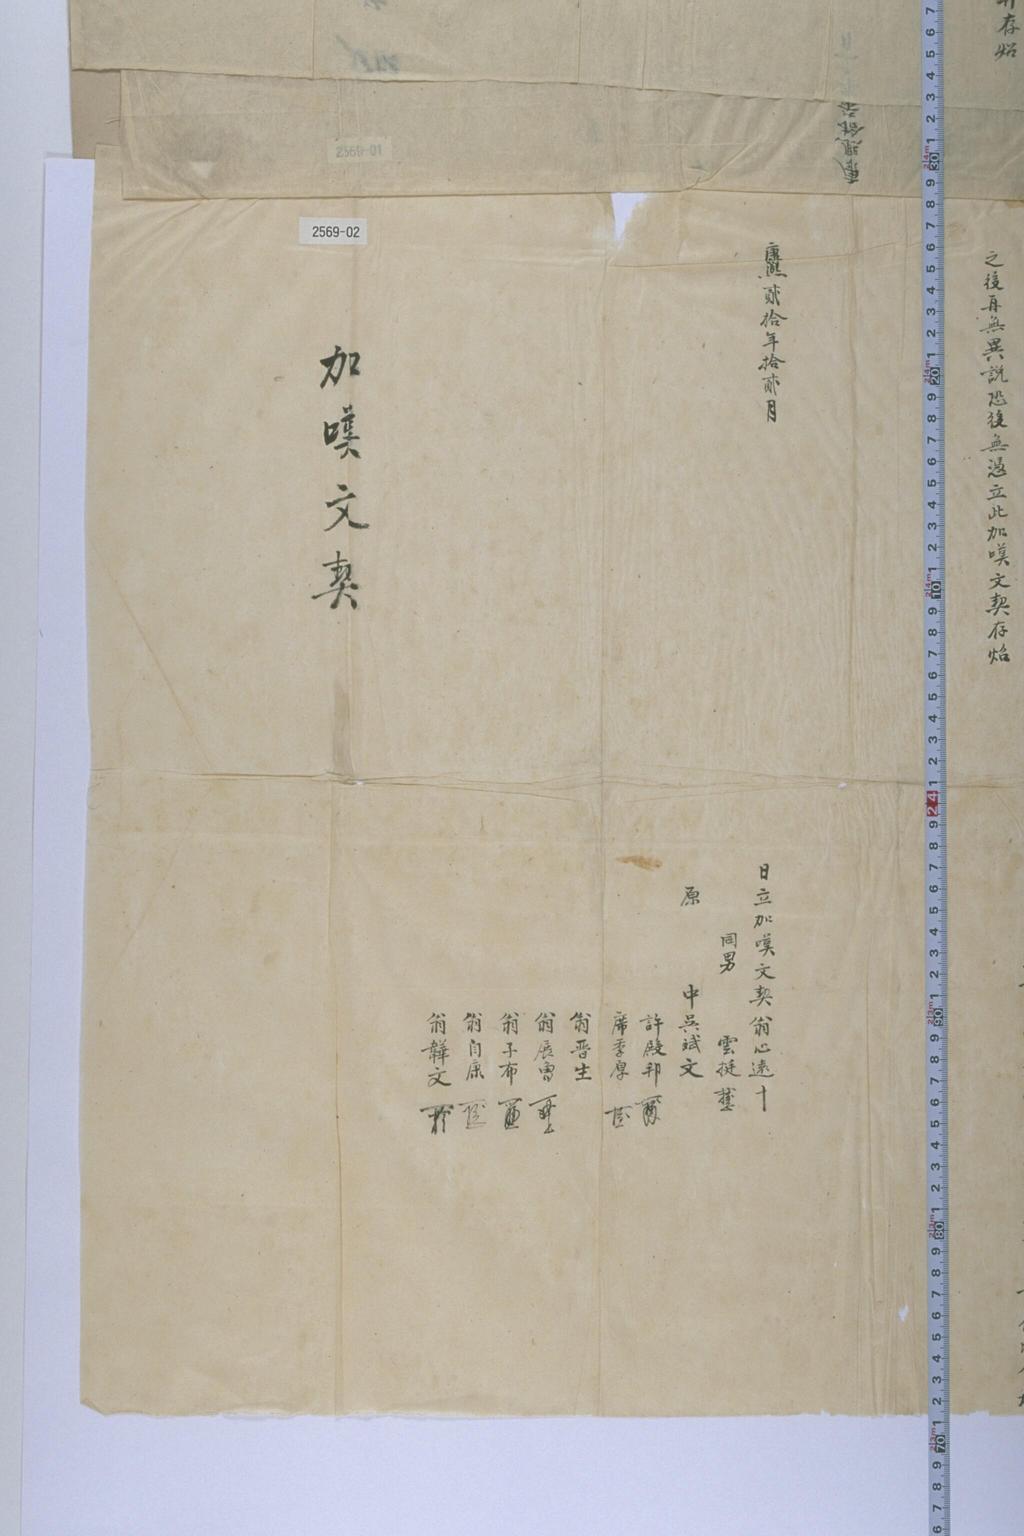 并存炤
之後再無異説恐後無慿立此加嘆文契存炤
康熙貳拾年拾貳月 日立加嘆文契翁心遠十
同男 雲挺
原 中吳斌文
許殿邦
席季厚
翁晋生
翁展曾
翁子布
翁自康
翁韡文
加嘆文契
2569-01
2569-02